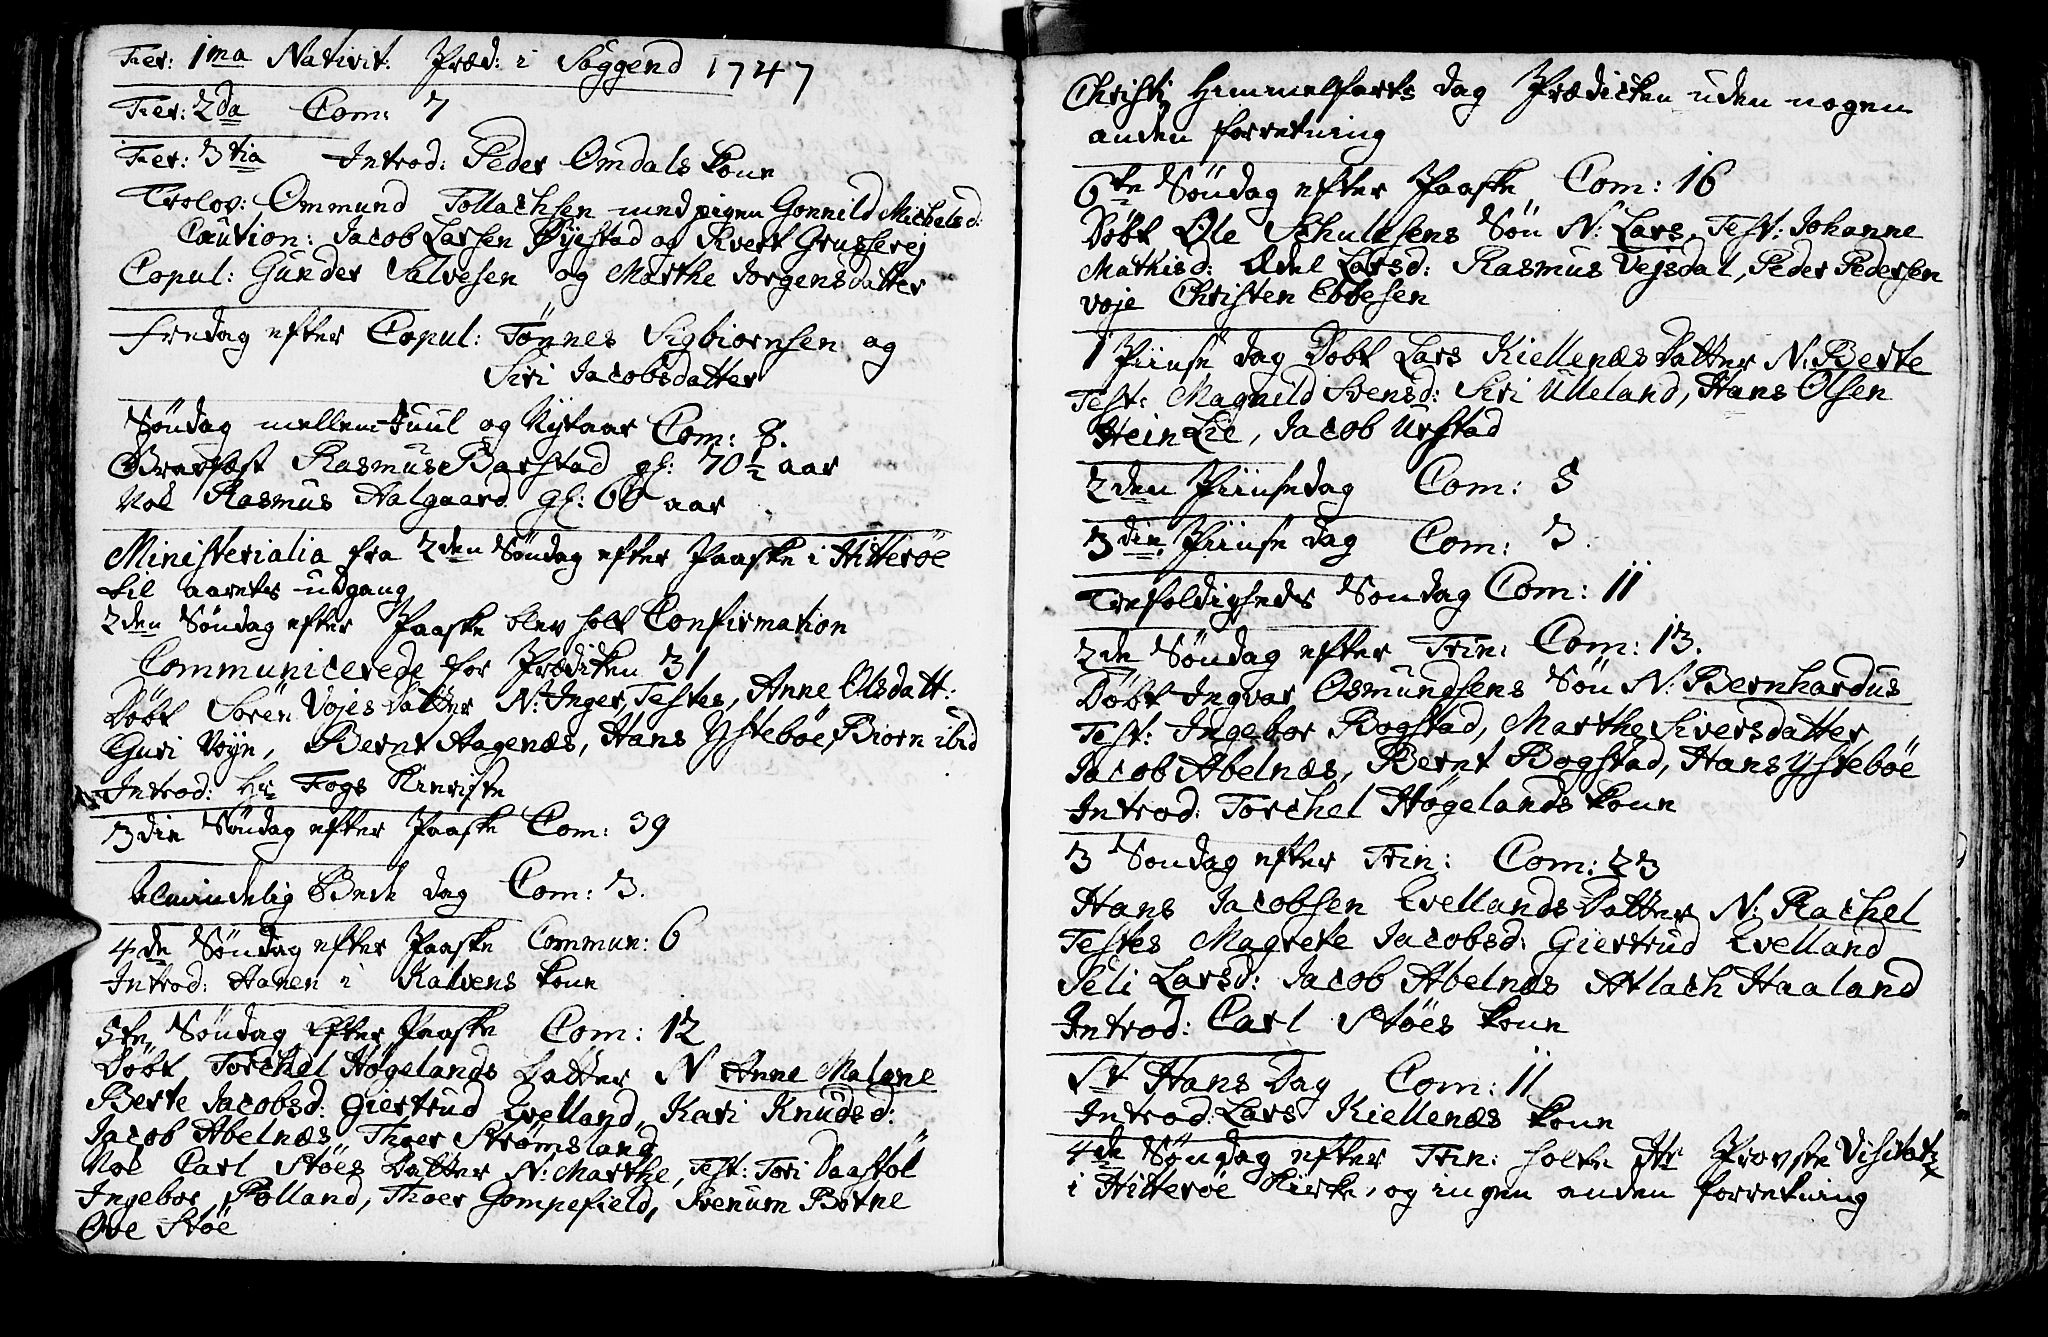 Fer: 1ma Nativit: Præd: i Soggend 1747
Fer: 2da Com: 7
Fer: 3tia Introd: Peder Omdals kone
Trolov: Ommund Tollachsen med pigen Gonnild Michelsd:
Caution: Jacob Larsen Øyestad og Sivert Grusserej
Copul: Gunder Salvesen og Marthe Jorgensdatter
Fredag efter Copul: Tønnes Sigbiørnsen og
Siri Jacobsdatter
Søndag mellem Juul og Nytaar Com: 8.
Gravfæst Rasmus Barstad gl: 70½ aar
Nok Rasmus Aalgaard gl: 66 aar
Ministerialia fra 2den Søndag efter Paaske i Hitterøe
til aarets udgang
2den Søndag efter Paaske blev holt Confirmation
Communicerede for Prædiken 31
Døbt Søren Vojes Datter N: Inger, Testes, Anne Olsdatt:
Guri Voje, Bernt Aagenæs, Hans Ystebøe, Biorn ibid
Introd: Hr Fogs Kieriste
3die Søndag efter Paaske Com: 39
Almindelig Bede dag Com: 3.
4de Søndag efter Paaske Commun: 6
Introd: Hanen i Kalvens kone
5te Søndag Efter Paaske Com: 12
Døbt Torchel Høgelands Datter N Anne Malene
Berte Jacobsd: Giertrud Evelland, Kari Knudsd:
Jacob Abelnæs, Thoer Strømsland
Nok Carl Støes Datter N: Marthe, Test: Tori Daastøl
Ingebor Polland, Thoer Gompefield, Svenum Botne
Ove Støe
Christi Himmelfarts dag Prædiken uden nogen
anden forretning
6te Søndag efter Paaske Com: 16
Døbt Ole Schulesens Søn N: Lars, Test: Johanne
Mathisd: Adel Larsd: Rasmus Vejsdal, Peder Pedersen
voje Christen Ebbesen
1 Pinse dag Døbt Lars Kiellenæs Datter N: Berte
Test: Magnild Svensd: Siri Ulleland, Hans Olsen
Hein Lie, Jacob Urstad
2den Pinsedag Com: 5
3die Pinse dag Com: 3.
Trefoldigheds Søndag Com: 11
2de Søndag efter Trin: Com: 13.
Døbt Ingvar Osmundsens Søn N: Bernhardus
Test: Ingebor Bogstad, Marthe Siversdatter
Jacob Abelnæs, Bernt Bogstad, Hans Ystebøe
Introd: Torchel Høgelands kone
3 Søndag efter Trin: Com: 23
Hans Jacobsen Evellands Datter N: Rachel
Testes Magrete Jacobsd: Giertrud Evelland
Seli Larsd: Jacob Abelnæs Atlach Haaland
Introd: Carl Støes kone
St Hans Dag Com: 11
Introd: Lars Kiellenæs kone
4de Søndag efter Trin: holte Hr Provste Visitatz
i Hitterøe Kirke, og ingen anden forretning